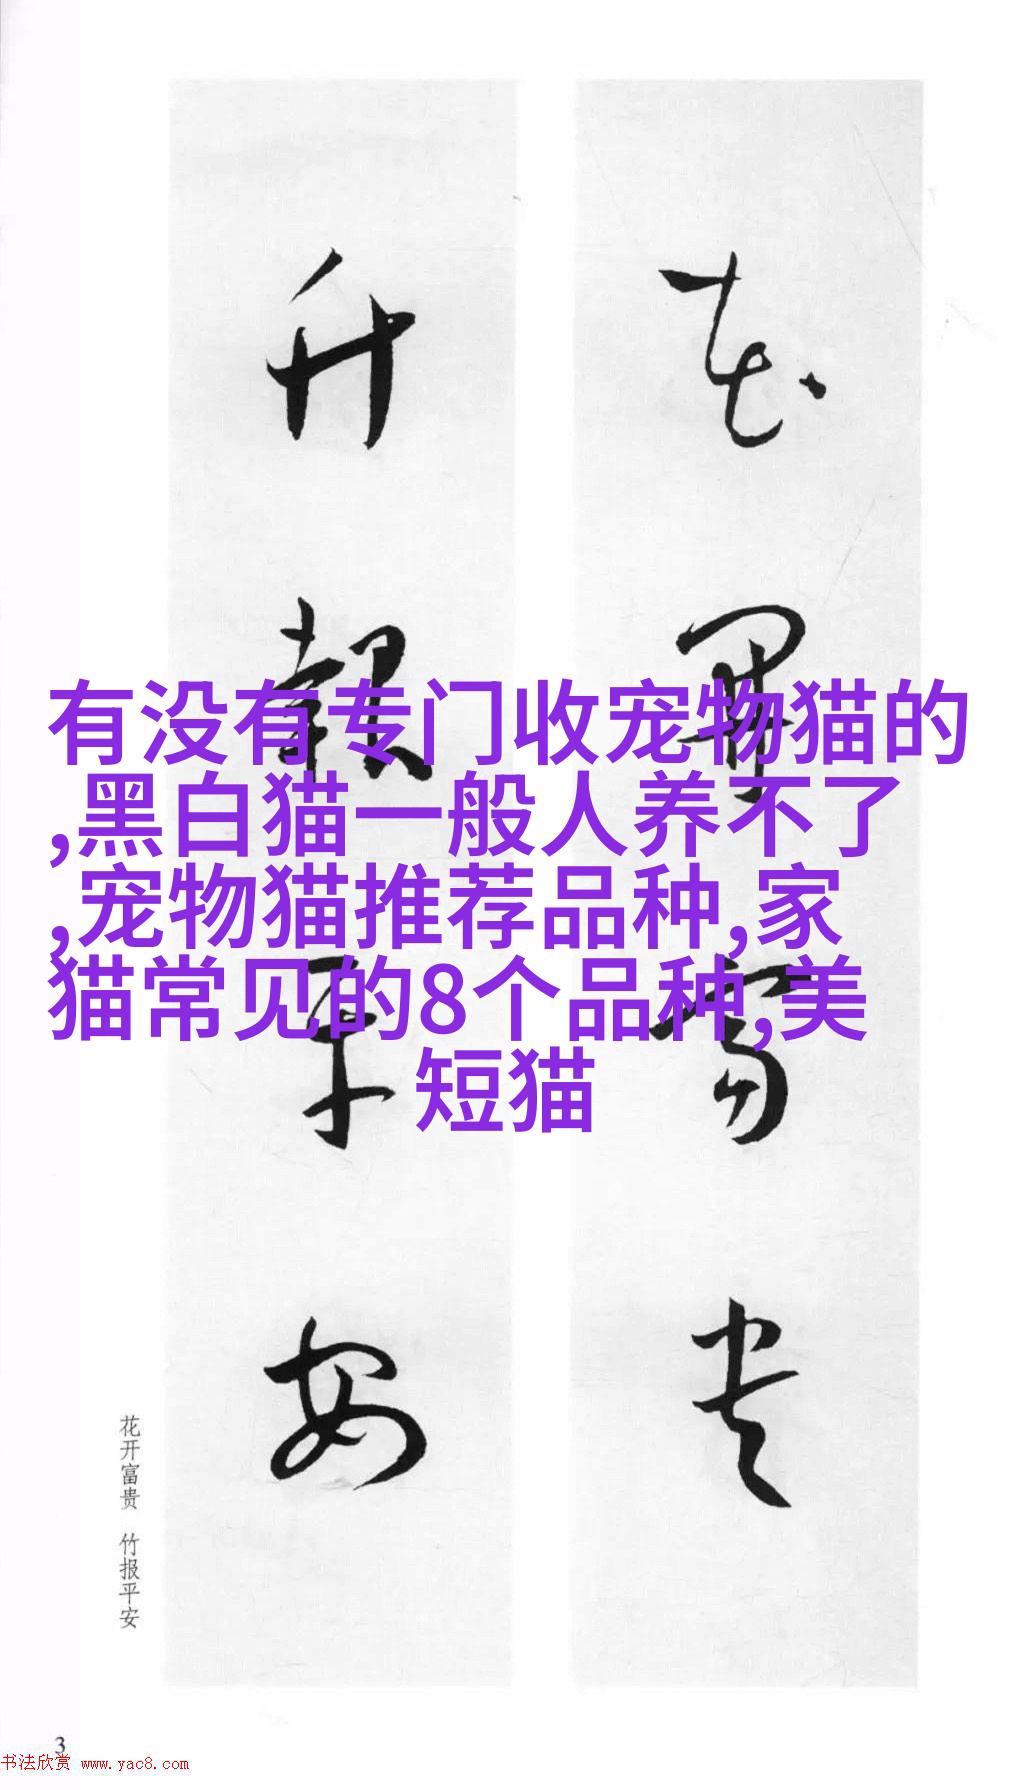 有没有专门收宠物猫的
,黑白猫一般人养不了
,宠物猫推荐品种,家
猫常见的8个品种,美
短猫
花开富贵
竹报平安
花开富贵 竹报平安
3
书法欣赏 www.yac8.com